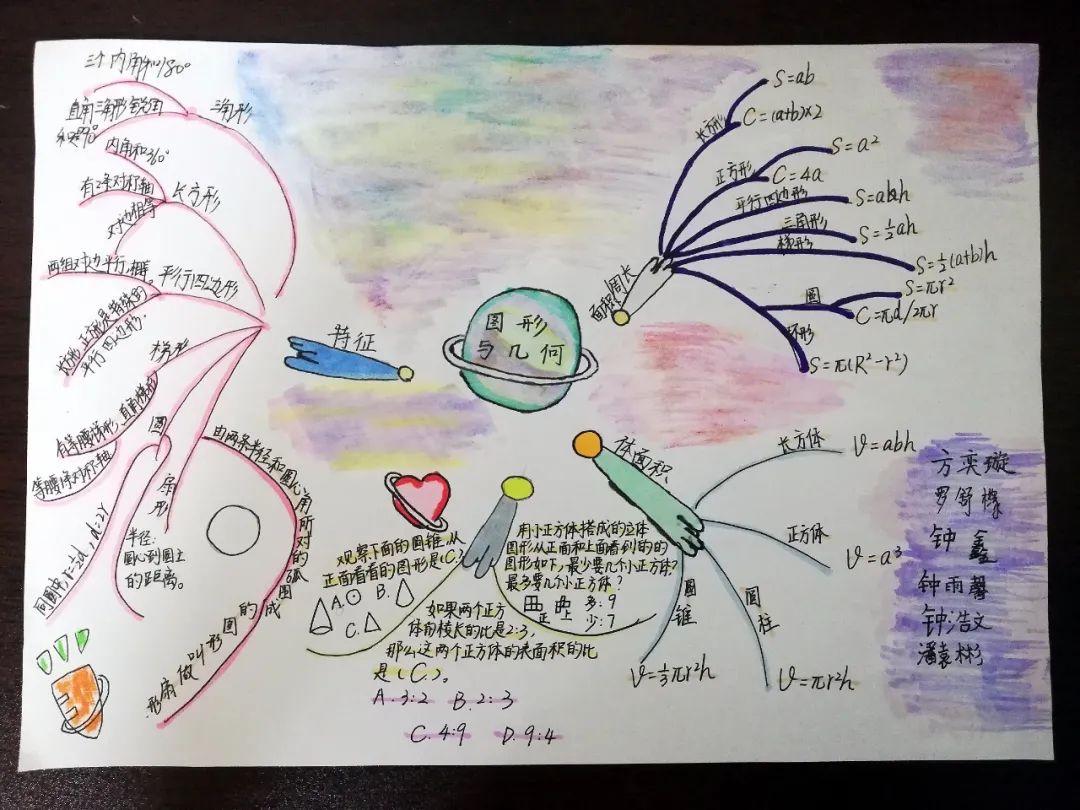 图形
与几何
特征
三角形
三个内角和180°
直角三角形锐角
和是90°
长方形
内角和360°
有2条对称轴
对边相等
平行四边形
两组对边平行,相等。
长方形,正方形是特殊的
平行四边形.
梯形
有等腰梯形,直角梯形
等腰1条对称轴
圆
半径:
圆心到圆上
的距离。
扇形
由两条半径和圆心角所对的弧围成的图形叫做扇形.
面积周长
长方形
S=ab
C=(a+b)×2
正方形
S=a²
C=4a
平行四边形
三角形
S=½ah
梯形
S=½(a+b)h
圆
S=πr²
C=πd/2πr
环形
S=π(R²-r²)
体面积
长方体
V=abh
正方体
V=a³
圆柱
V=πr²h
圆锥
V=⅓πr²h
观察下面的圆锥,从
正面看看的图形是(C)
A. B.
C.
如果两个正方
体的棱长的比是2:3,
那么这两个正方体的表面积的比
是(C)。
A.3:2 B.2:3
C.4:9 D.9:4
用小正方体搭成的立体
图形从正面和上面看到的的
图形如下,最少要几个小正方体?
最多要几个小正方体?
正 上
多:9
少:7
方奕璇
罗舒檬
钟鑫
钟雨馨
钟浩文
潘袁彬